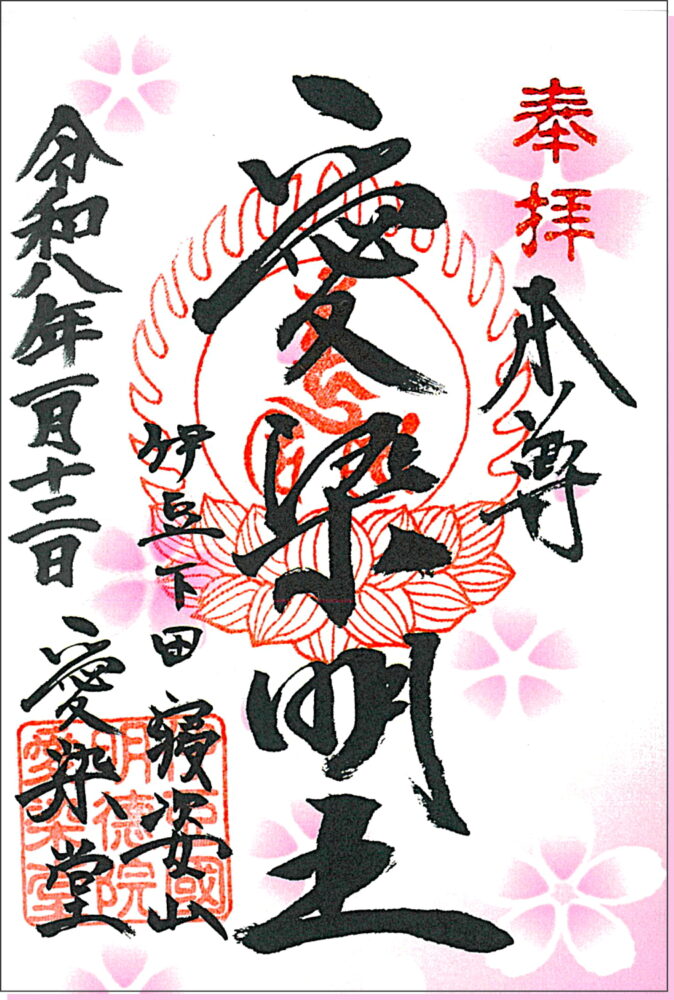 奉拝
本尊
愛染明王
伊豆下田 寝姿山
愛染堂
令和八年一月十二日
伊豆國
明徳院
愛染堂